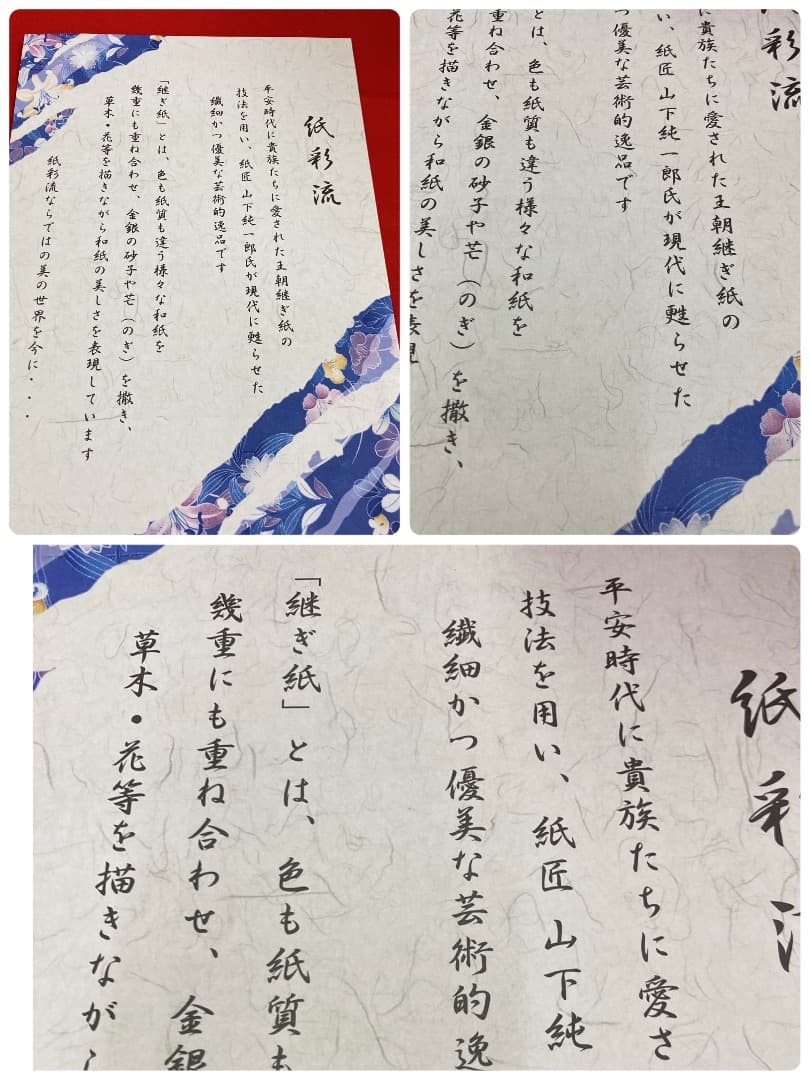 紙彩流
平安時代に貴族たちに愛された王朝継ぎ紙の
技法を用い、紙匠 山下純一郎氏が現代に甦らせた
繊細かつ優美な芸術的逸品です
「継ぎ紙」とは、色も紙質も違う様々な和紙を
幾重にも重ね合わせ、金銀の砂子や芒（のぎ）を撒き、
草木・花等を描きながら和紙の美しさを表現しています
紙彩流ならではの美の世界を今に・・・
彩流
に貴族たちに愛された王朝継ぎ紙の
い、紙匠 山下純一郎氏が現代に甦らせた
つ優美な芸術的逸品です
とは、色も紙質も違う様々な和紙を
重ね合わせ、金銀の砂子や芒（のぎ）を撒き、
花等を描きながら和紙の美しさを表現
紙彩流
平安時代に貴族たちに愛さ
技法を用い、紙匠 山下純
繊細かつ優美な芸術的逸
「継ぎ紙」とは、色も紙質も
幾重にも重ね合わせ、金銀
草木・花等を描きながら